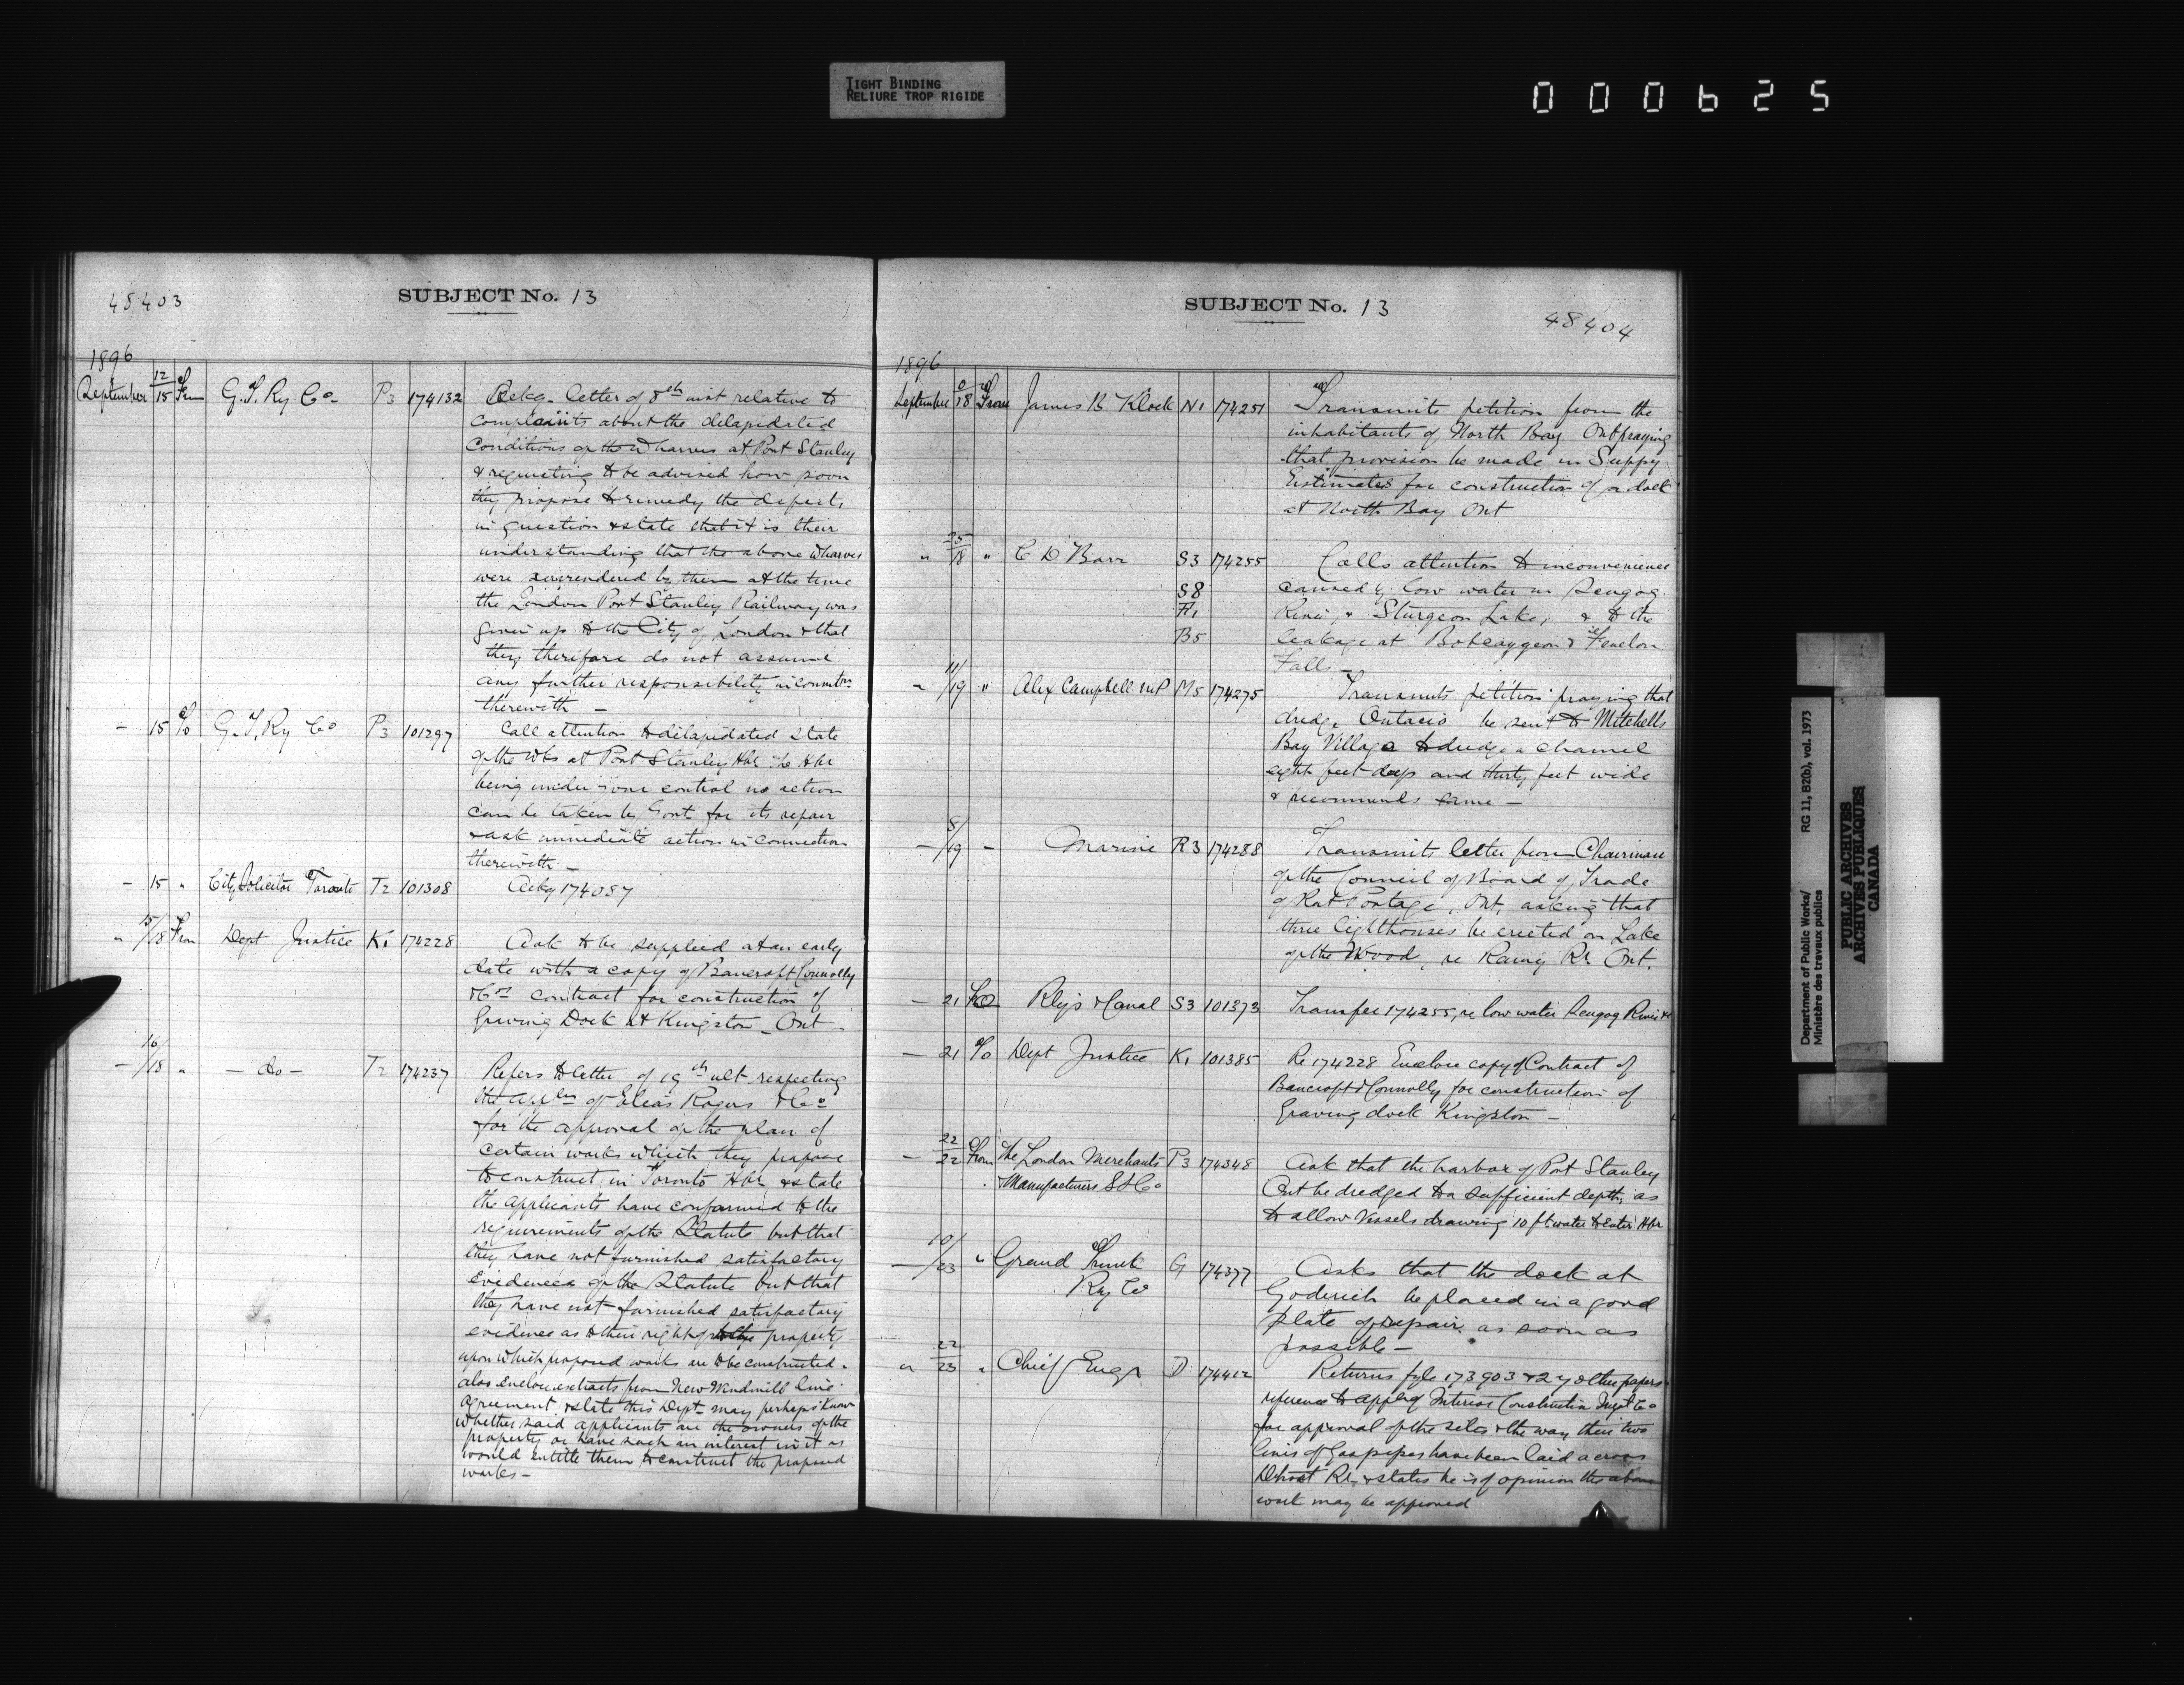 TIGHT BINDING
RELIURE TROP RIGIDE
000625
48403
SUBJECT No. 13
1896
September 12/15 From G.T. Ry Co. P3 174132 Ackg. letter of 8th inst relative to
complaints about the delapidated
conditions of the Wharves at Port Stanley
& requesting to be advised how soon
they propose to remedy the defects
in question & state that it is their
understanding that the above Wharves
were surrendered by them at the time
the London Port Stanley Railway was
given up to the City of London & that
they therefore do not assume
any further responsibility in connection
therewith —
– 15 To G.T. Ry Co P3 101297 Call attention to dilapidated state
of the Wks at Port Stanley Hbr The Hbr
being under your control no action
can be taken by Govt for its repair
& ask immediate action in connection
therewith —
– 15 " City Solicitor Toronto T2 101308 Ackg 174087
" 15/18 From Dept Justice K1 174228 Ask to be supplied at an early
date with a copy of Bancroft Connolly
& Co's contract for construction of
Graving Dock at Kingston – Ont –
– 16/18 " – do – T2 174237 Refers to letter of 19th ult respecting
the appln of Elias Rogers & Co
for the approval of the plan of
certain works which they propose
to construct in Toronto Hbr & state
the applicants have conformed to the
requirements of the Statute but that
they have not furnished satisfactory
evidences of the Statute but that
they have not furnished satisfactory
evidence as to their right to the property
upon which proposed works are to be constructed –
also enclose extracts from New Windmill line
agreement & state this Dept may perhaps know
whether said applicants are the owners of the
property or have such an interest in it as
would entitle them to construct the proposed
works –
SUBJECT No. 13
48404
1896
September /18 From James B Klock N1 174251 Transmits petition from the
inhabitants of North Bay Ont praying
that provision be made in Suppy
Estimates for construction of a dock
at North Bay Ont
" /18 " C D Barr S3 174255 Calls attention to inconvenience
S8 caused by low water in Scugog
F1 River, & Sturgeon Lake, & to the
B5 leakage at Bobcaygeon & Fenelon
Falls —
" 11/19 " Alex Campbell MP M5 174275 Transmits petition praying that
dredge Ontario be sent to Mitchells
Bay Village to dredge a channel
eight feet deep and thirty feet wide
& recommends same —
– 8/19 – Marine R3 174288 Transmits letter from Chairman
of the Council of Board of Trade
of Rat Portage, Ont, asking that
three lighthouses be erected on Lake
of the Wood, re Rainy Rr Ont.
– 21 To Rlys & Canal S3 101373 Transfer 174255, re low water Scugog River &c
– 21 To Dept Justice K1 101385 Re 174228 Enclose copy of Contract of
Bancroft & Connolly for construction of
Graving dock Kingston —
– 22/22 From The London Merchants P3 174348 Ask that the harbor of Port Stanley
& Manufacturers S S Co Ont be dredged to a sufficient depth, as
to allow Vessels drawing 10 ft water to enter Hbr
– 10/23 " Grand Trunk G 174377 Asks that the dock at
Ry Co Goderich be placed in a good
state of repair as soon as
possible —
" 22/23 " Chief Engr D 174412 Returns fyle 173903 & 27 other papers
reference to appln of Interior Construction Co
for approval of the sites & the way their two
lines of Gas pipes have been laid across
Detroit Rr & states he is of opinion the above
work may be approved
Department of Public Works/
Ministère des travaux publics
RG 11, B2(b), vol. 1973
PUBLIC ARCHIVES
ARCHIVES PUBLIQUES
CANADA